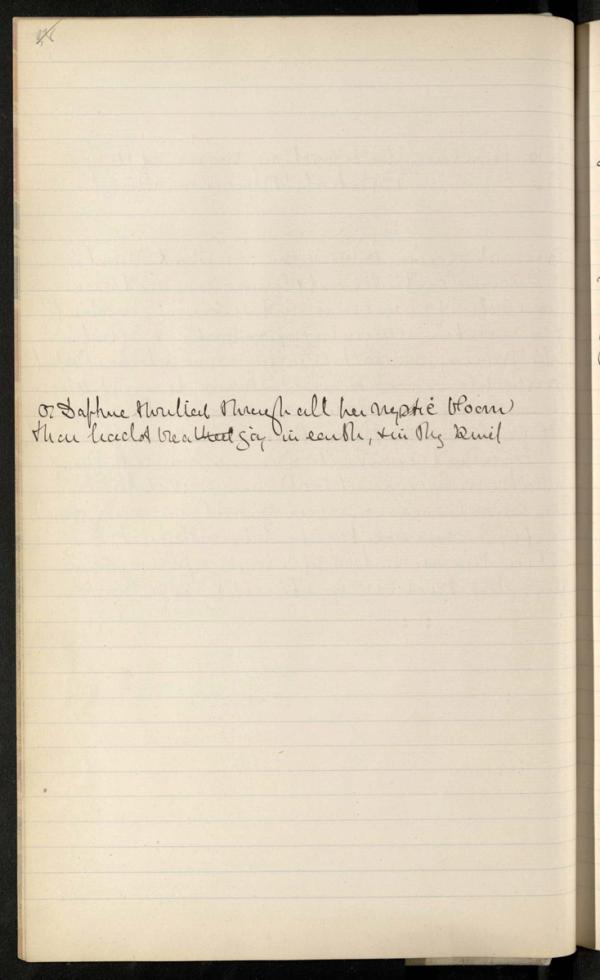 O Daphne thrilled through all her mystic bloom
thou hadst breathed joy in earth, & in thy kind